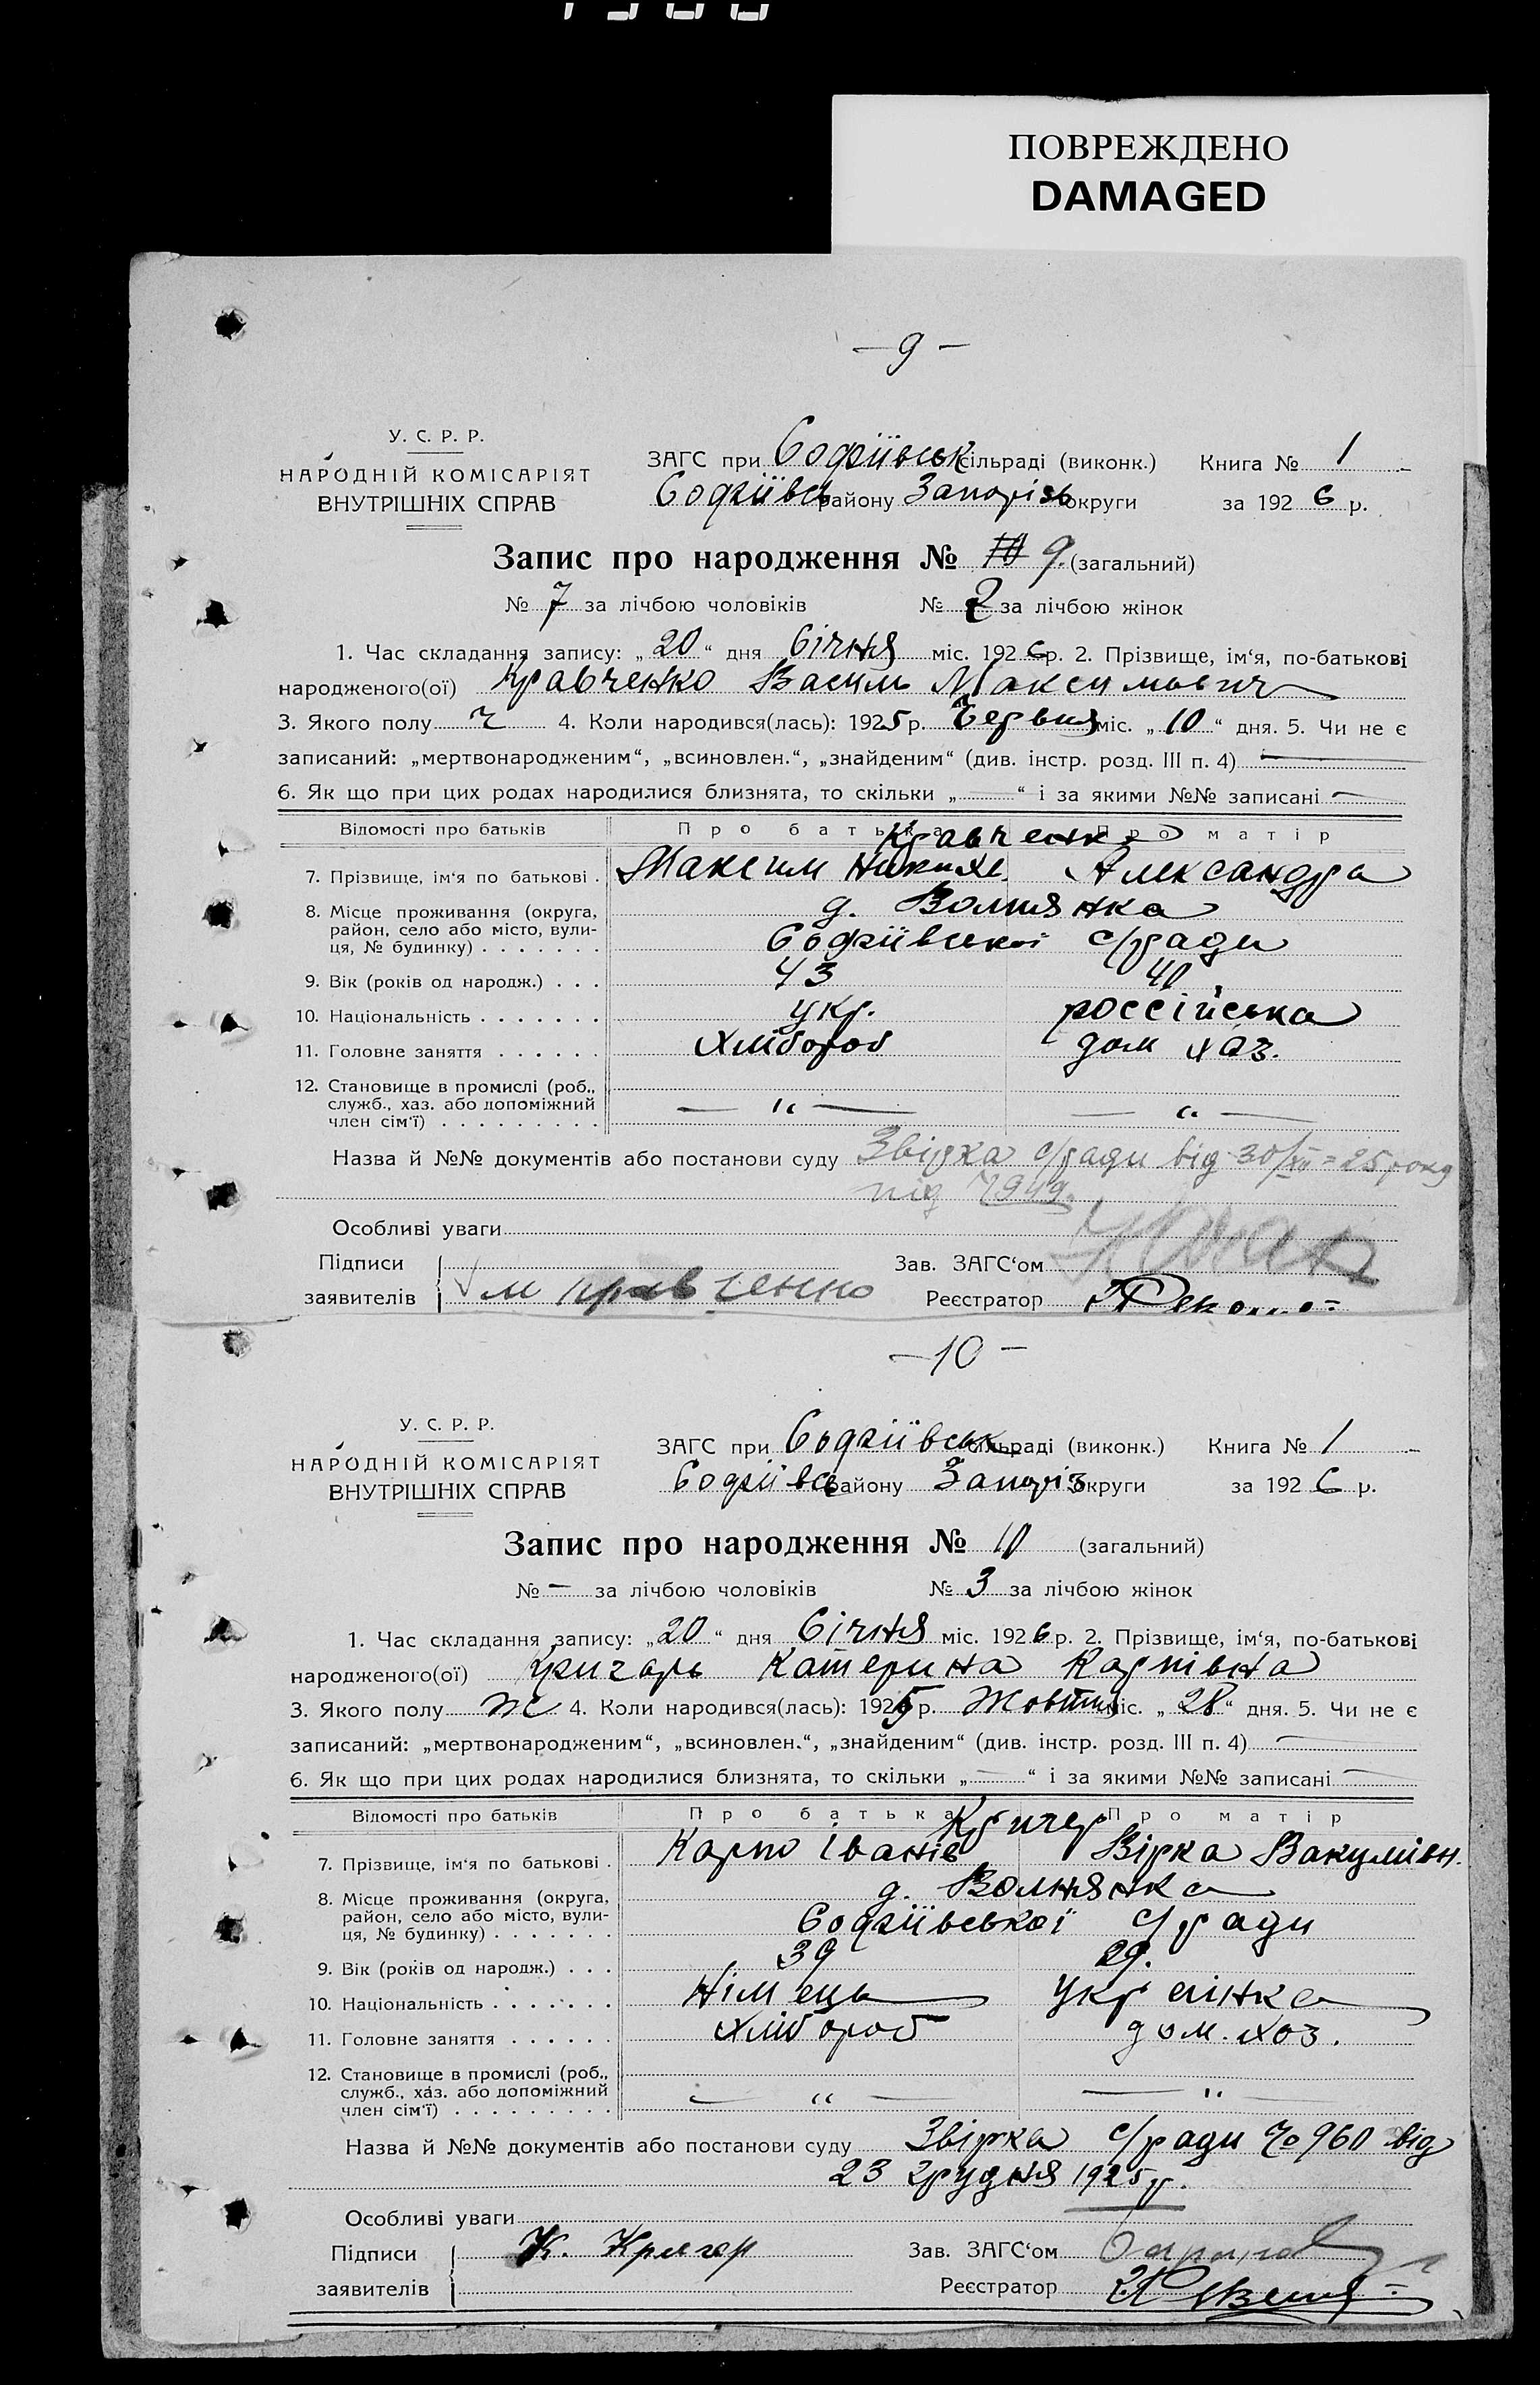 ПОВРЕЖДЕНО
DAMAGED
— 9 —
У. С. Р. Р.
НАРОДНІЙ КОМІСАРІЯТ
ВНУТРІШНІХ СПРАВ
ЗАГС при Софіївськ сільраді (виконк.) Книга № 1
Софіївсь району Запорізь округи за 1926 р.
Запис про народження № 10 9. (загальний)
№ 7 за лічбою чоловіків № 2 за лічбою жінок
1. Час складання запису: „20“ дня Січня міс. 1926 р. 2. Прізвище, ім‘я, по-батькові
народженого(ої) Кравченко Василь Максимович
3. Якого полу ч 4. Коли народився(лась): 1925 р. Червня міс. „10“ дня. 5. Чи не є
записаний: „мертвонародженим“, „всиновлен.“, „знайденим“ (див. інстр. розд. III п. 4) —
6. Як що при цих родах народилися близнята, то скільки „—“ і за якими №№ записані —
Відомості про батьків Про батька Про матір
Кравченко
7. Прізвище, ім‘я по батькові . Максим Александра
8. Місце проживання (округа, район, село або місто, вулиця, № будинку) . . . . . . . д. Волнянка
Софіївської с/ради
9. Вік (років од народж.) . . . 43 40
10. Національність . . . . . . . укр. россійська
11. Головне заняття . . . . . . Хлібороб дом хаз.
12. Становище в промислі (роб., служб., хаз. або допоміжний член сім‘ї) . . . . . . . . . — „ — — „ —
Назва й №№ документів або постанови суду Звірка с/ради від 30/XII = 25 року
під 7949.
Особливі уваги
Підписи
заявителів м кравченко
Зав. ЗАГС‘ом
Реєстратор
— 10 —
У. С. Р. Р.
НАРОДНІЙ КОМІСАРІЯТ
ВНУТРІШНІХ СПРАВ
ЗАГС при Софіївськ сільраді (виконк.) Книга № 1
Софіївсь району Запоріз округи за 1926 р.
Запис про народження № 10 (загальний)
№ — за лічбою чоловіків № 3 за лічбою жінок
1. Час складання запису: „20“ дня Січня міс. 1926 р. 2. Прізвище, ім‘я, по-батькові
народженого(ої) Катерина Карпівна
3. Якого полу ж 4. Коли народився(лась): 1925 р. Жовтня міс. „28“ дня. 5. Чи не є
записаний: „мертвонародженим“, „всиновлен.“, „знайденим“ (див. інстр. розд. III п. 4) —
6. Як що при цих родах народилися близнята, то скільки „—“ і за якими №№ записані —
Відомості про батьків Про батька Про матір
7. Прізвище, ім‘я по батькові . Карпо Іванів Вірка Вакулівн.
8. Місце проживання (округа, район, село або місто, вулиця, № будинку) . . . . . . . д. Волнянка
Софіївської с/ради
9. Вік (років од народж.) . . . 39 29.
10. Національність . . . . . . . Німець Українка
11. Головне заняття . . . . . . Хлібороб дом. хоз.
12. Становище в промислі (роб., служб., хаз. або допоміжний член сім‘ї) . . . . . . . . . — „ — — „ —
Назва й №№ документів або постанови суду Звірка с/ради № 960 від
23 грудня 1925 р.
Особливі уваги
Підписи
заявителів К.
Зав. ЗАГС‘ом
Реєстратор